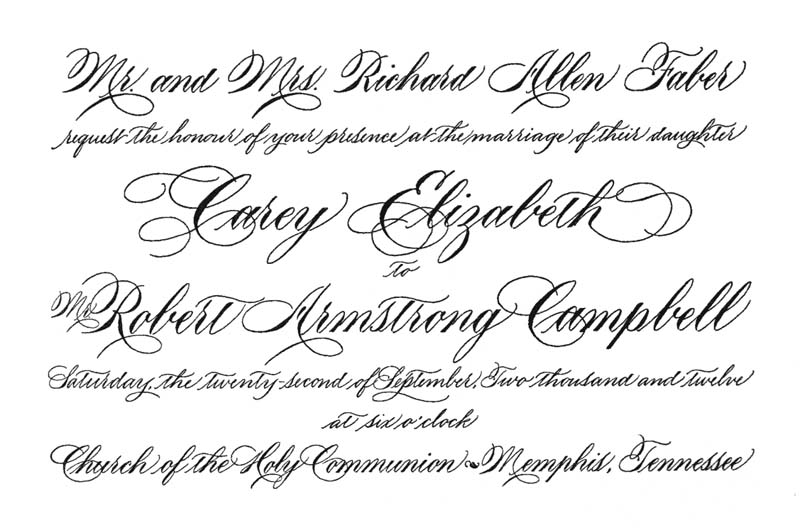 Mr. and Mrs. Richard Allen Faber
request the honour of your presence at the marriage of their daughter
Carey Elizabeth
to
Mr. Robert Armstrong Campbell
Saturday, the twenty-second of September, Two thousand and twelve
at six o'clock
Church of the Holy Communion ~ Memphis, Tennessee